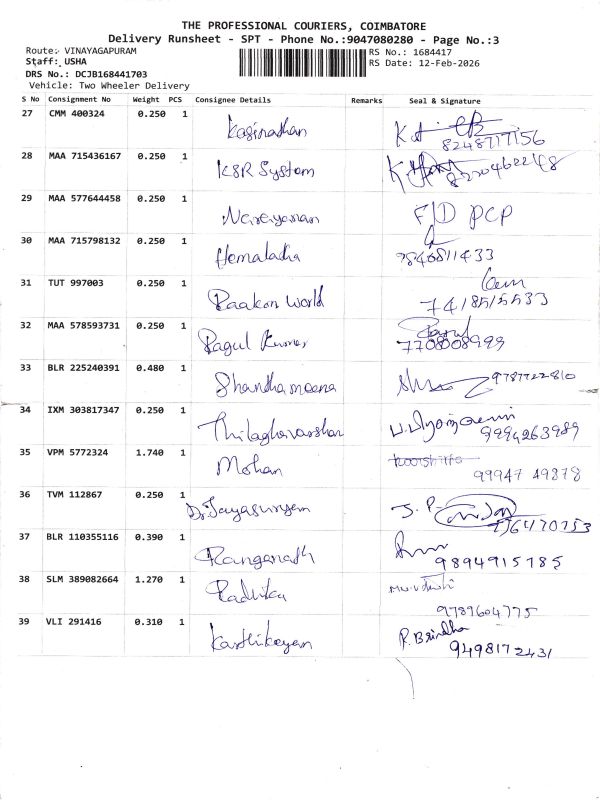 THE PROFESSIONAL COURIERS, COIMBATORE
Delivery Runsheet - SPT - Phone No.:9047080280 - Page No.:3
Route: VINAYAGAPURAM
RS No.: 1684417
Staff: USHA
RS Date: 12-Feb-2026
DRS No.: DCJB168441703
Vehicle: Two Wheeler Delivery
S No Consignment No Weight PCS Consignee Details Remarks Seal & Signature
27 CMM 400324 0.250 1 Kasinathan
28 MAA 715436167 0.250 1 KSR System
29 MAA 577644458 0.250 1 Narayanan F/D PCP
30 MAA 715798132 0.250 1 Hemalatha
9840811433
31 TUT 997003 0.250 1 Paakon World
7418515533
32 MAA 578593731 0.250 1 Ragul Kumar
7708008999
33 BLR 225240391 0.480 1 Shanthameena 9787722810
34 IXM 303817347 0.250 1 Thilaghavarshan
9994263989
35 VPM 5772324 1.740 1 Mohan
99947 49878
36 TVM 112867 0.250 1 Dr. Jayasuryan J. P.
37 BLR 110355116 0.390 1 Ranganath
9894915785
38 SLM 389082664 1.270 1 Radhika
9789604775
39 VLI 291416 0.310 1 Karthikeyan R. Brindha
9498172431